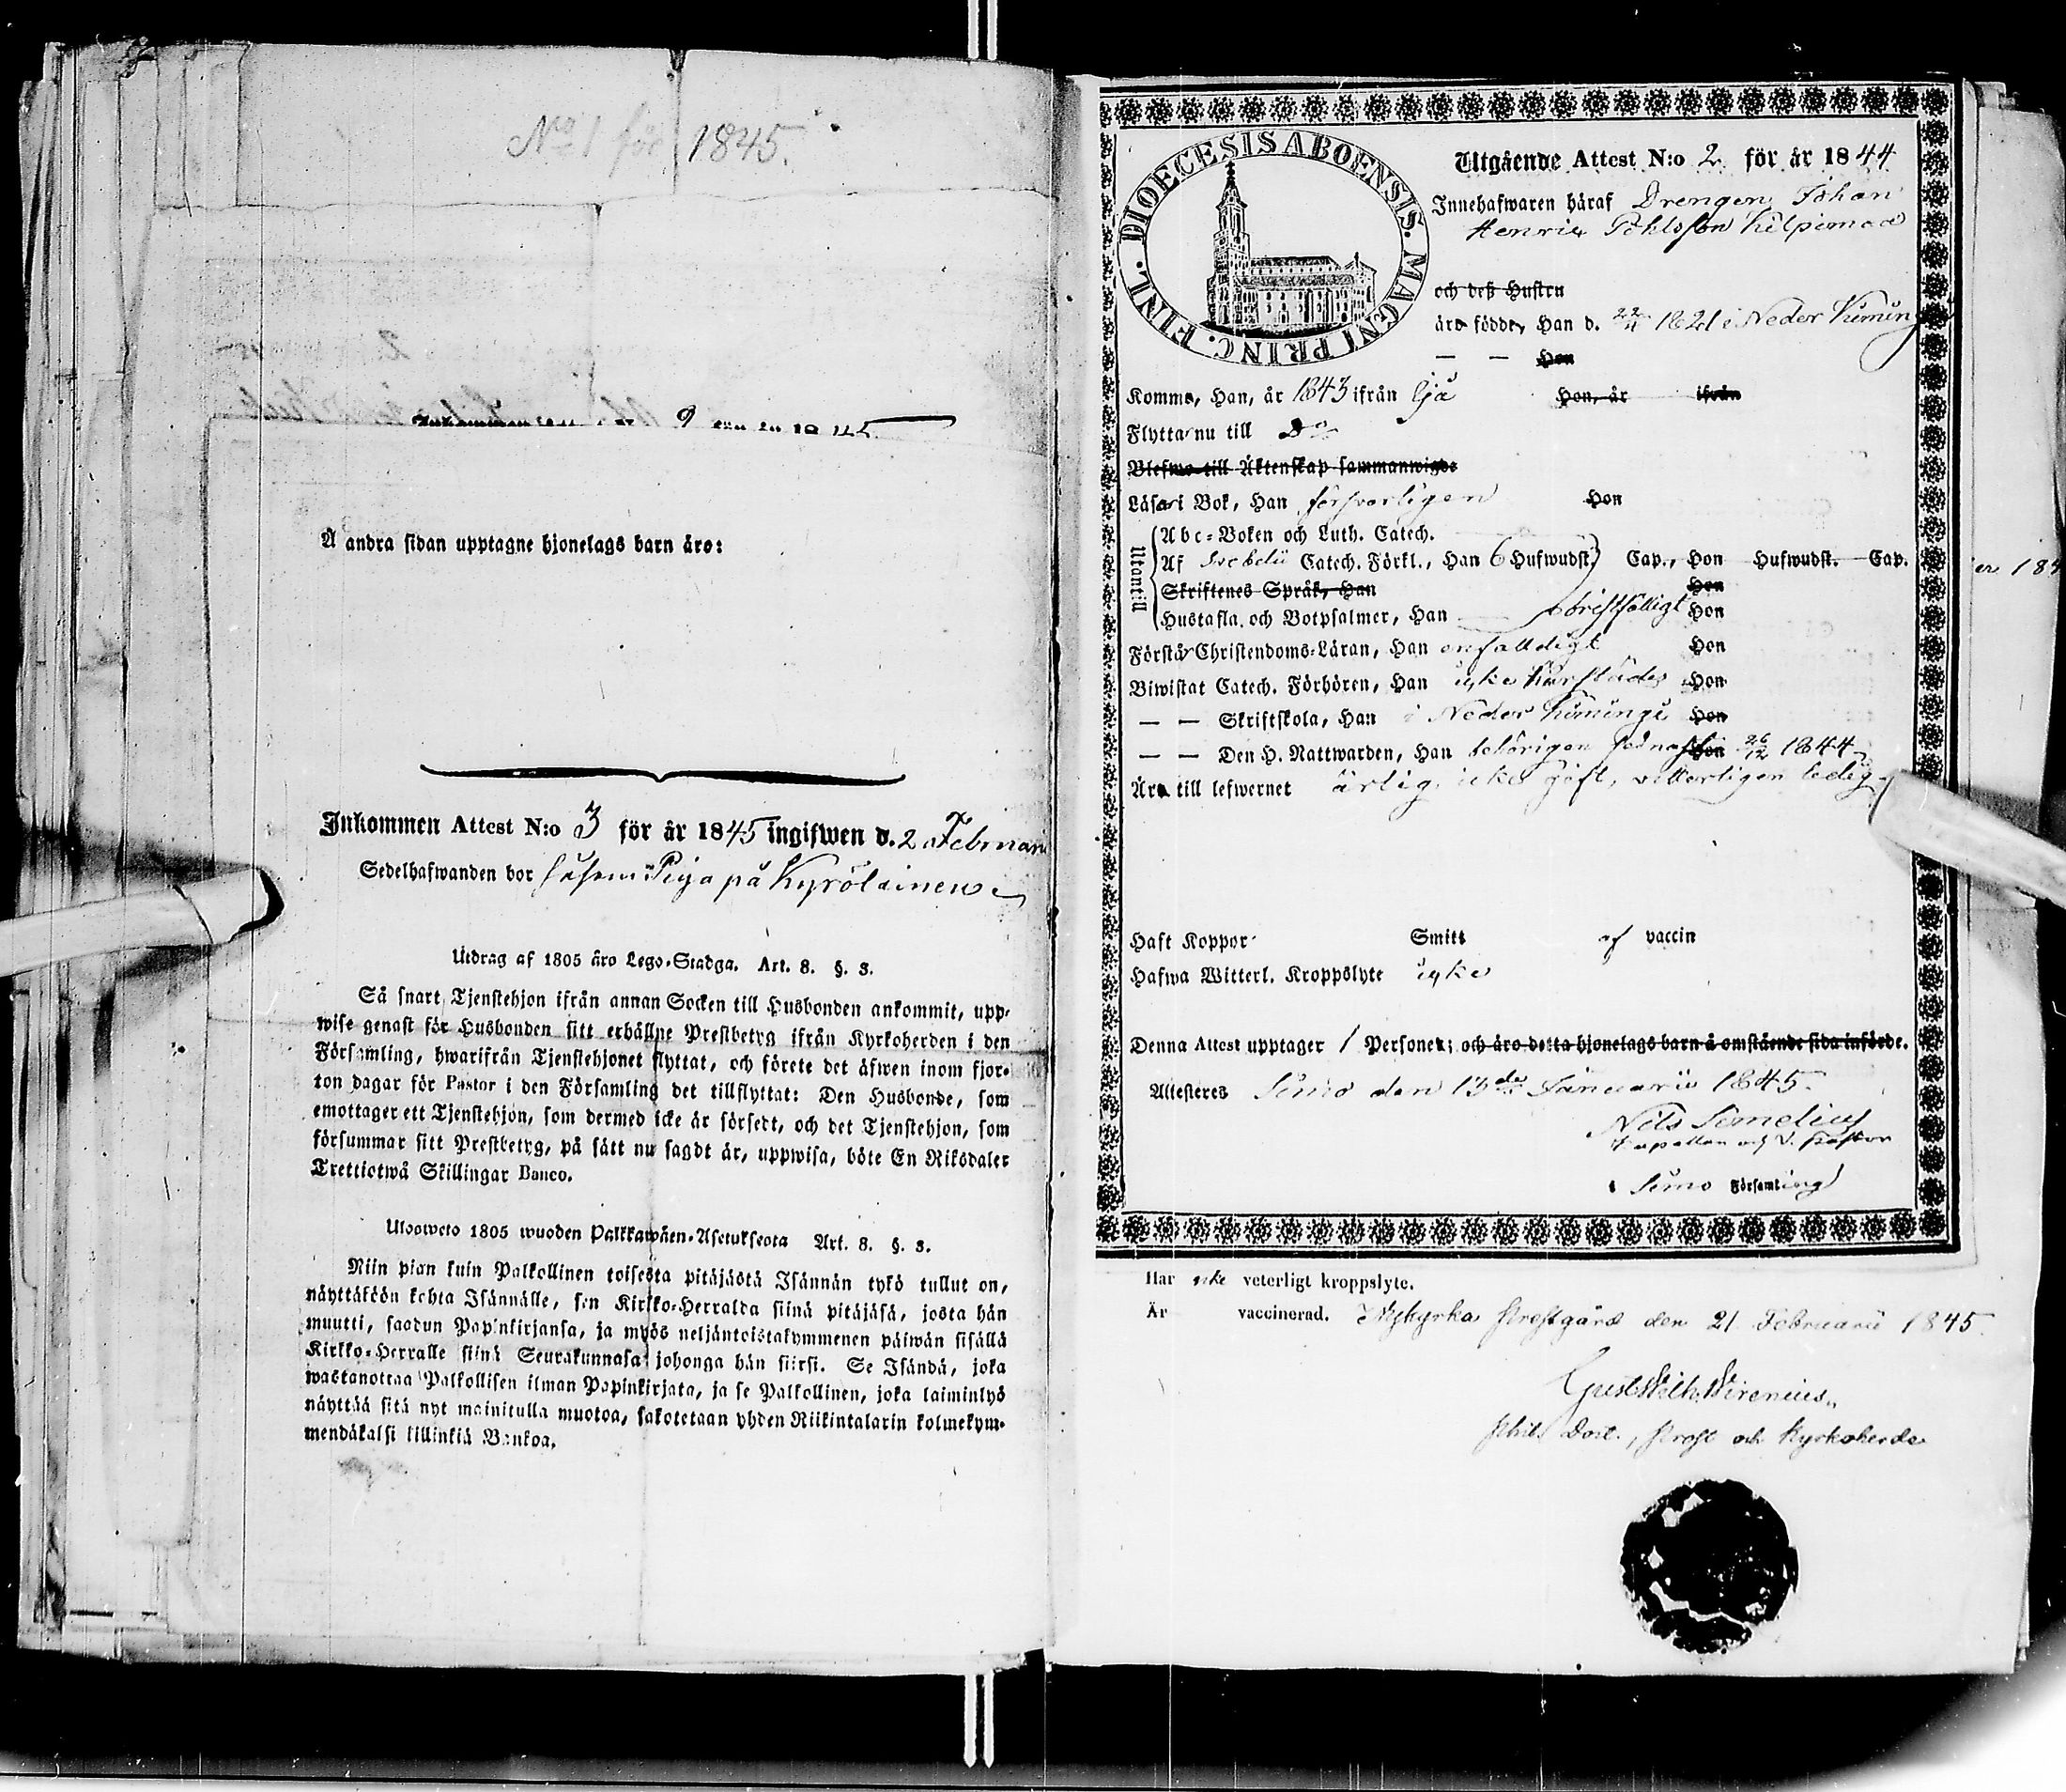 No 1 för 1845.
Å andra sidan upptagne hjonelags barn äro:
Inkommen Attest N:o 3 för år 1845 ingifwen d. 2 Februari
Sedelhafwanden bor såsom Piga på Kyröläinen
Utdrag af 1805 års Lego-Stadga. Art. 8. §. 3.
Så snart Tjenstehjon ifrån annan Socken till Husbonden ankommit, upp-
wise genast för Husbonden sitt erhållne Prestbetyg ifrån Kyrkoherden i den
Församling, hwarifrån Tjenstehjonet flyttat, och förete det äfwen inom fjor-
ton dagar för Pastor i den Församling det tillflyttat: Den Husbonde, som
emottager ett Tjenstehjon, som dermed icke är försedt, och det Tjenstehjon, som
försummar sitt Prestbetyg, på sätt nu sagdt är, uppwisa, böte En Riksdaler
Trettiotwå Skillingar Banco.
Ulosweto 1805 wuoden Palkkawäen-Asetuksesta Art. 8. §. 3.
Niin pian kuin Palkollinen toisesta pitäjästä Isännän tykö tullut on,
näyttäköön kohta Isännälle, sen Kirkko-Herralda siinä pitäjäsä, josta hän
muutti, saadun Papinkirjansa, ja myös neljäntoistakymmenen päiwän sisällä
Kirkko-Herralle siinä Seurakunnasa johonga hän siirsi. Se Isändä, joka
wastanottaa Palkollisen ilman Papinkirjata, ja se Palkollinen, joka laiminlyö
näyttää sitä nyt mainitulla muotoa, sakotetaan yhden Riikintalarin kolmekym-
mendäkaksi killinkiä Bankoa.
DIOECESIS ABOENSIS. MAGNI PRINC. FINL.
Utgående Attest N:o 2 för år 1844
Innehafwaren häraf Drengen Johan
Henric Påhlsson Kilpimaa
och deß Hustru
äro födde, Han d. 22/4 1821 i Neder Kiming
— — Hon
Komma, Han, år 1843 ifrån Ijå Hon, år ifrån
Flytta nu till Do
Blefwo till Äktenskap sammanwigde
Läsa i Bok, Han försvarligen Hon
Utantill
Abc-Boken och Luth. Catech.
Af Svebelii Catech. Förkl., Han 6 Hufwudst. Cap., Hon Hufwudst. Cap.
Skriftenes Språk, Han Hon
Hustafla. och Botpsalmer, Han bristfälligt Hon
Förstår Christendoms-Läran, Han enfaldigt Hon
Biwistat Catech. Förhören, Han icke härstädes Hon
— — Skriftskola, Han i Neder Kiminge Hon
— — Den H. Nattwarden, Han behörigen sednast Hon 26/12 1844
Äro till lefwernet ärlig, icke gift, vitterligen ledig
Haft Koppor Smitt af vaccin
Hafwa Witterl. Kroppslyte icke
Denna Attest upptager 1 Personer; och äro detta hjonelags barn å omstående sida införde.
Attesteres Simo den 13de Januarii 1845.
Nils Simelius
Capellan och V. Pastor
i Simo Församling
Har icke veterligt kroppslyte.
Är vaccinerad. Nykyrka Prestgård den 21 Februarii 1845.
Gust. Wilh. Wirenius
Phil. Doct., Prost och Kyrkoherde